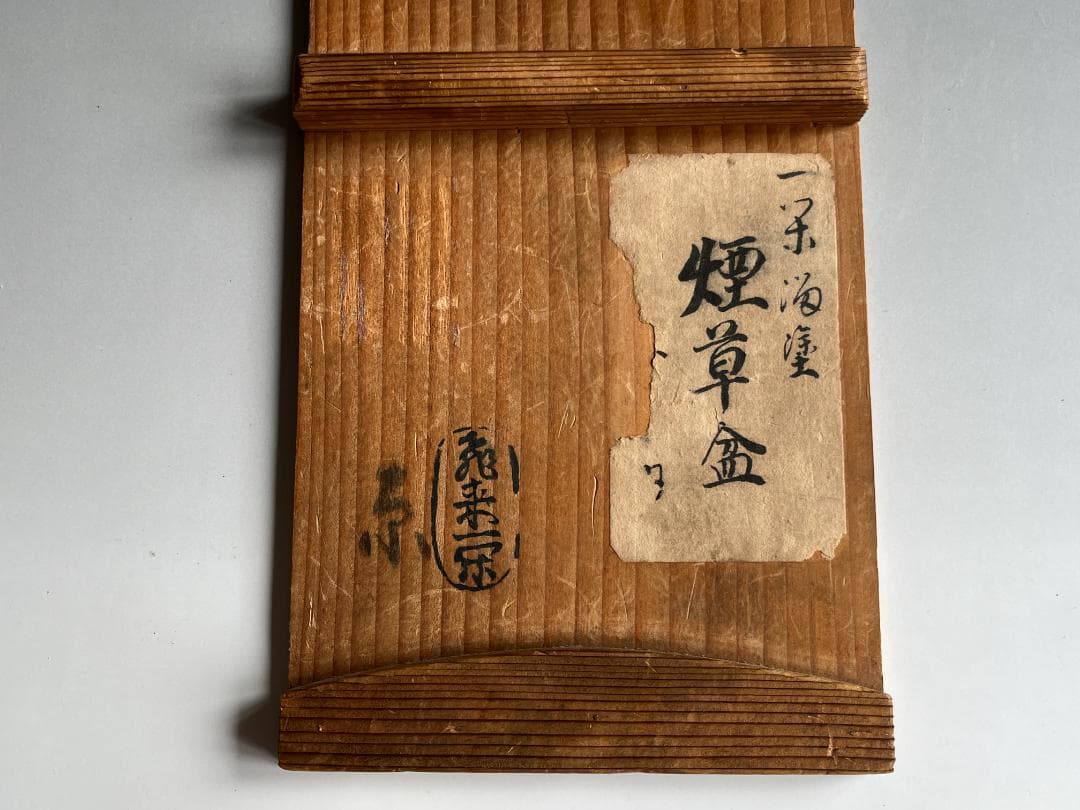 一閑溜塗
煙草盆
飛来一閑